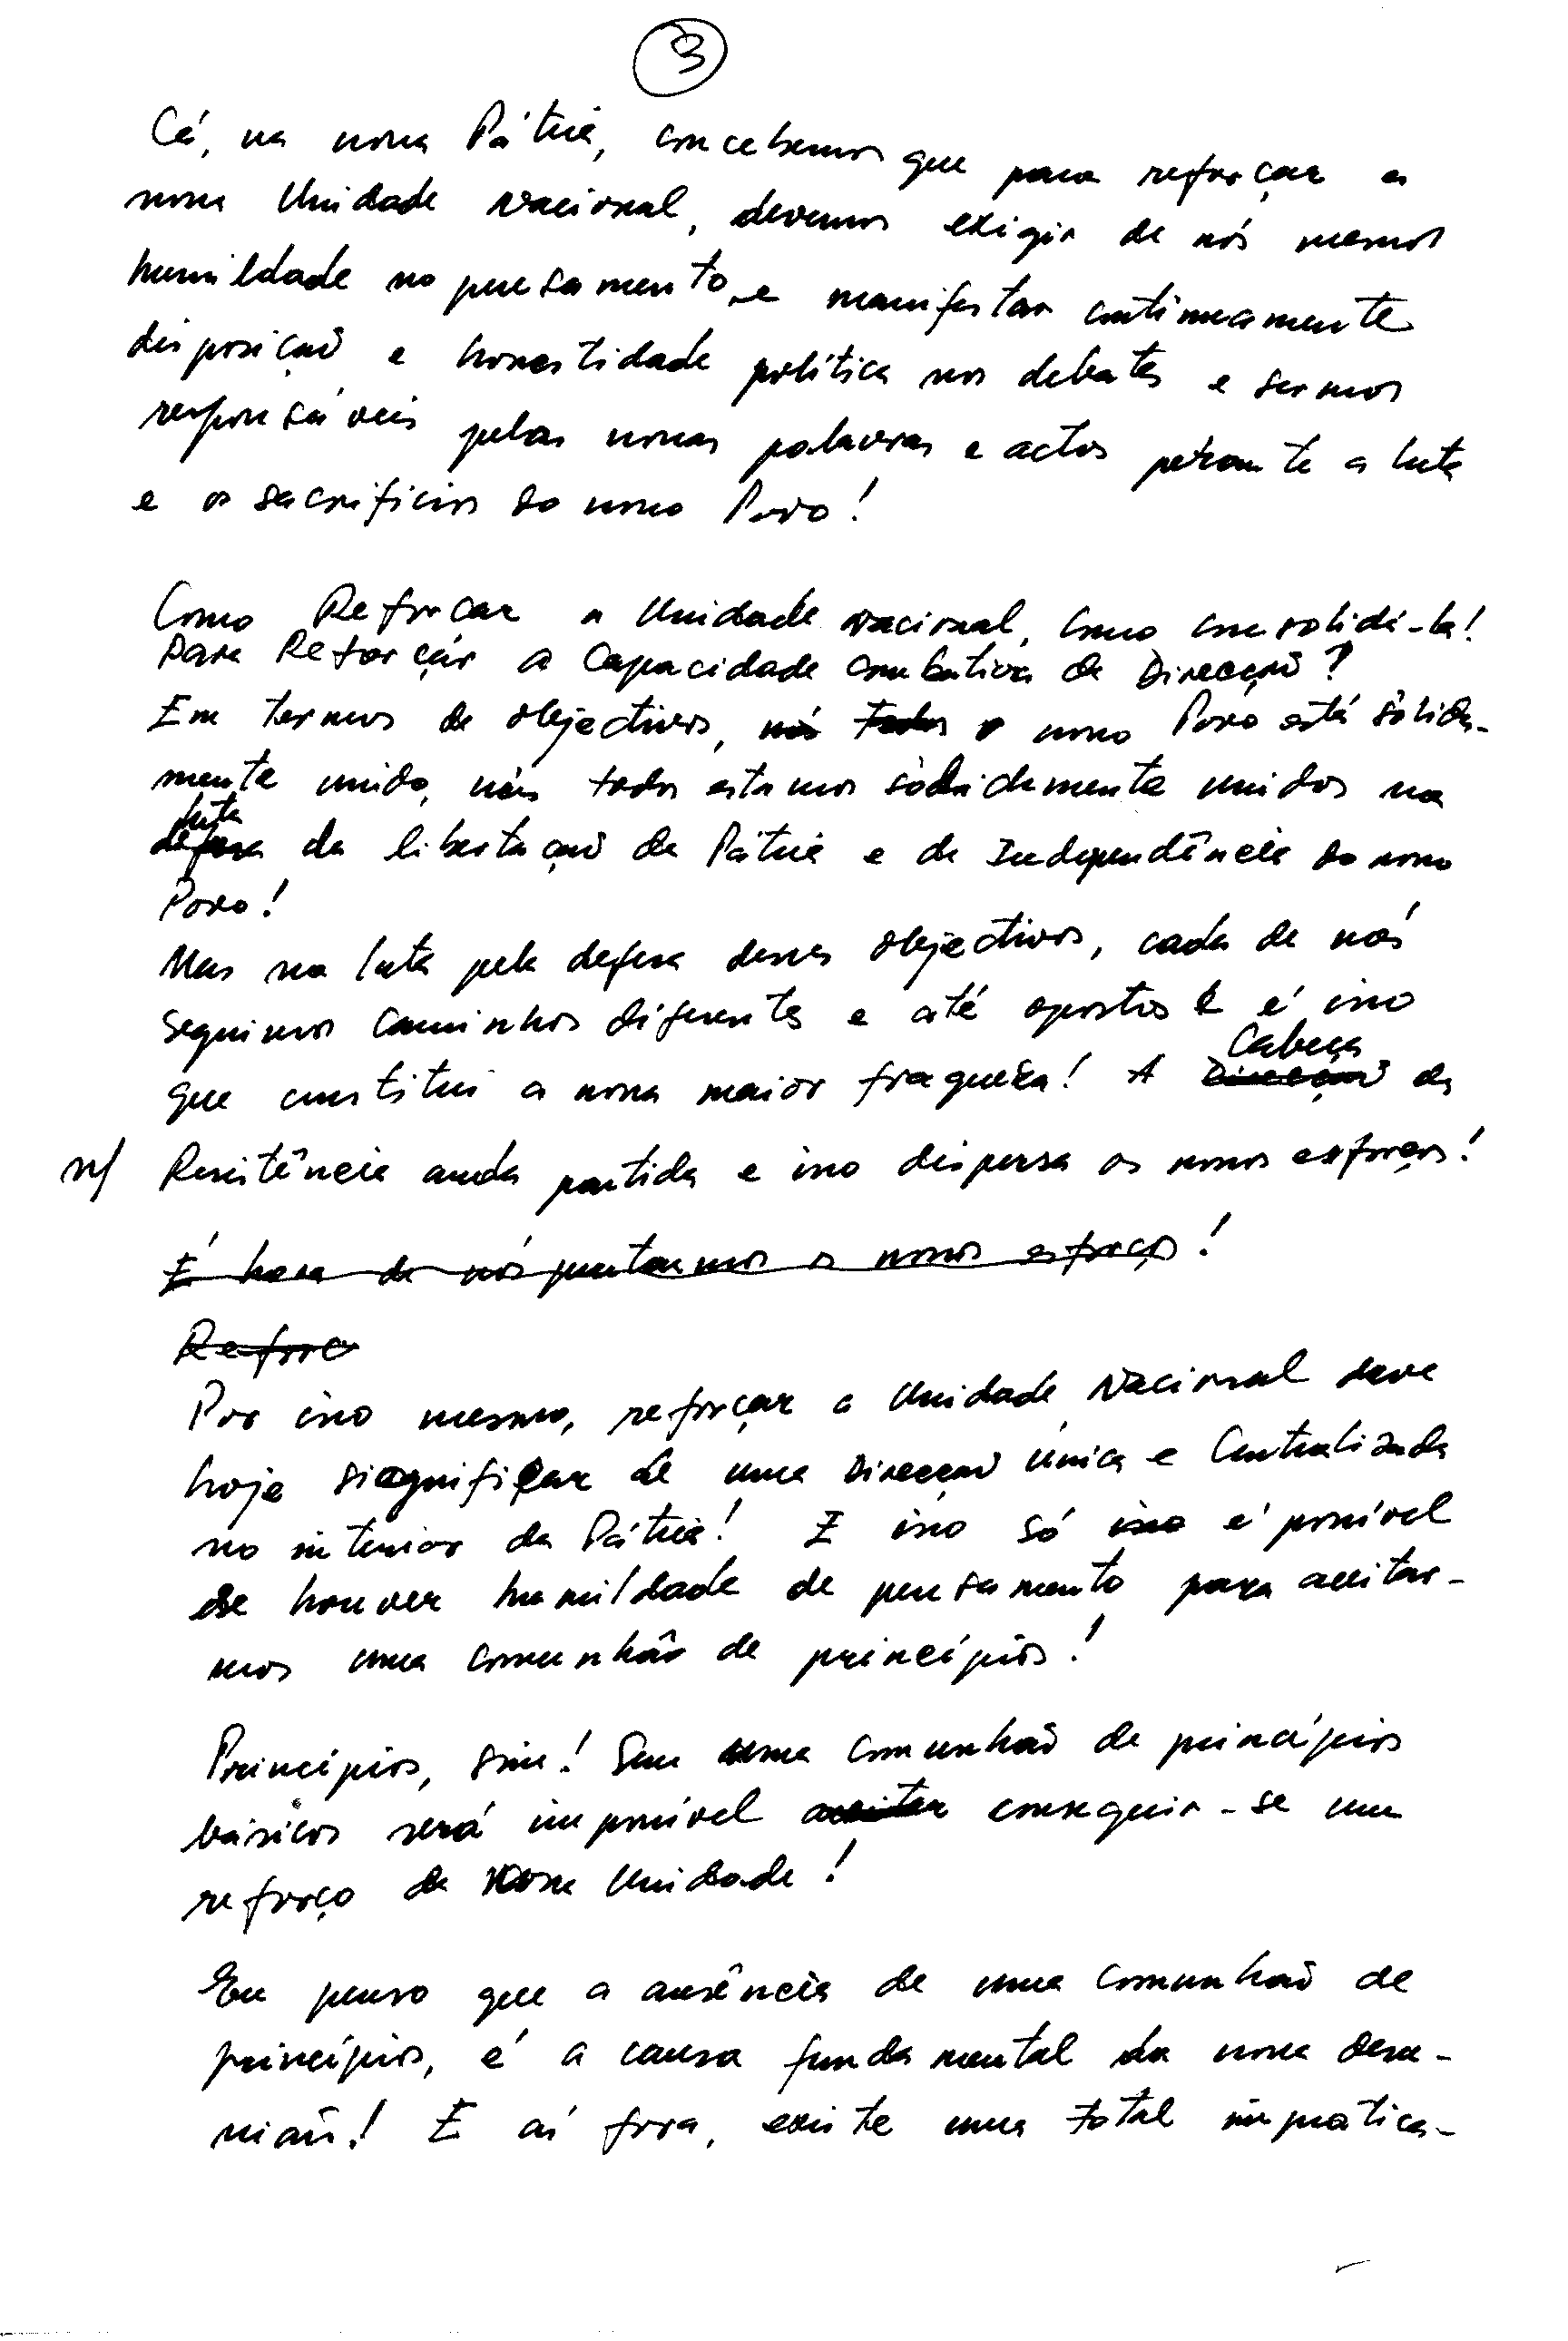 3
Cá, na nossa Pátria, concebemos que para reforçar a
nossa Unidade Nacional, devemos exigir de nós mesmos
humildade no pensamento, e manifestar continuamente
disposição e honestidade política nos debates e sermos
responsáveis pelas nossas palavras e actos perante a luta
e os sacrifícios do nosso Povo!
Como Reforçar a Unidade Nacional, como consolidá-la!
Para Reforçár a Capacidade combativa da Direcção?
Em termos de objectivos, nós todos o nosso Povo está sòlida-
mente unido, nós todos estamos sòlidamente unidos na
luta
defesa da libertação da Pátria e da Independência do nosso
Povo!
Mas na luta pela defesa desses objectivos, cada de nós
seguimos caminhos diferentes e até opostos e é isso
que constitui a nossa maior fraqueza! A Direcção da
Cabeça
n/ Resistência anda partida e isso dispersa os nossos esforços!
É hora de nós juntarmos os nossos esforços!
Reforc
Por isso mesmo, reforçar a Unidade Nacional deve
hoje significar de uma Direcção única e Centralizada
no interior da Pátria! E isso só isso é possível
se houver humildade de pensamento para aceitar-
mos uma comunhão de princípios!
Princípios, sim! Sem uma comunhão de princípios
básicos será impossível aceitar conseguir-se um
reforço da nossa Unidade!
Eu penso que a ausência de uma comunhão de
princípios, é a causa fundamental da nossa desu-
nião! E aí fora, existe uma total impratica-